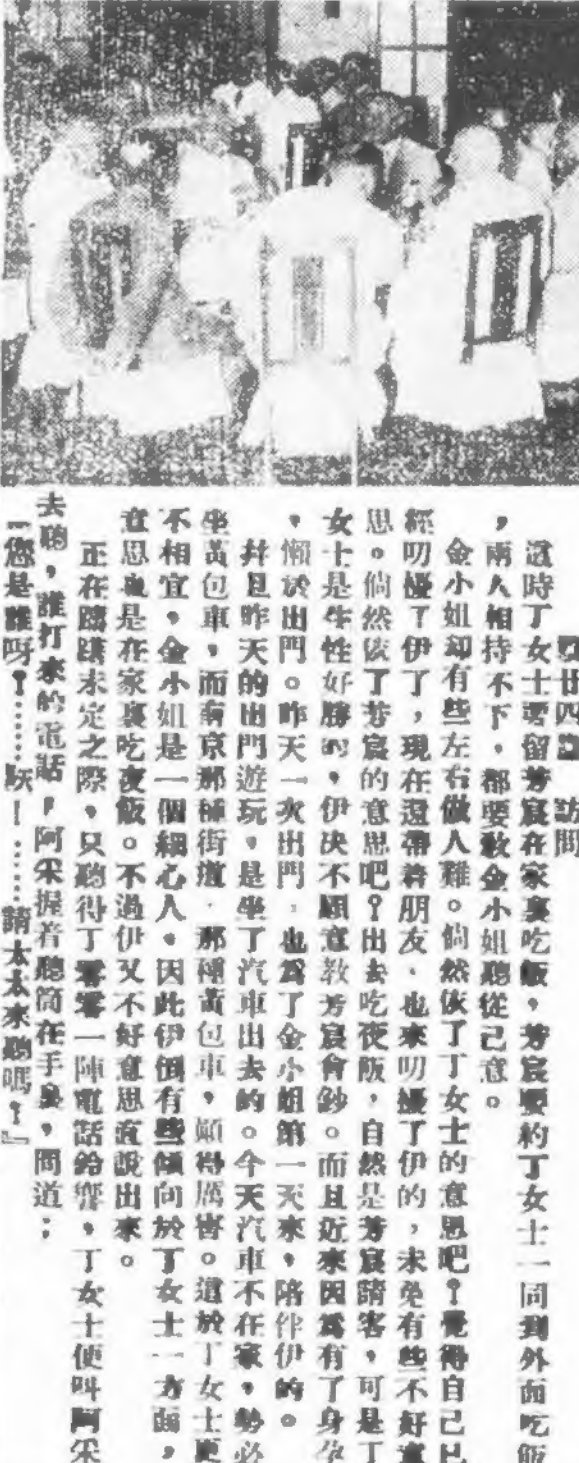 第廿四章　訪問
這時丁女士要留芳宸在家裏吃飯，芳宸要約丁女士一同到外面吃飯
，兩人相持不下，都要敎金小姐聽從己意。
金小姐却有些左右做人難。倘然依了丁女士的意思吧？覺得自己已
經叨擾了伊了，現在還帶着朋友、也來叨擾了伊的，未免有些不好意
思。倘然依了芳宸的意思吧？出去吃夜飯，自然是芳宸請客，可是丁
女士是生性好勝的，伊決不願意教芳宸會鈔。而且近來因爲有了身孕
，懶於出門。昨天一次出門，也爲了金小姐第一天來，陪伴伊的。
幷且昨天的出門遊玩，是坐了汽車出去的。今天汽車不在家，勢必
坐黃包車，而南京那種街道，那種黃包車，顚得厲害。這於丁女士更
不相宜，金小姐是一個細心人，因此伊倒有些傾向於丁女士一方面，
意思就是在家裏吃夜飯。不過伊又不好意思直說出來。
正在躊躇未定之際，只聽得丁零零一陣電話鈴響，丁女士便叫阿采
去聽，誰打來的電話，阿采握着聽筒在手裏，問道：
『您是誰呀？……朊！……請太太來聽嗎？』